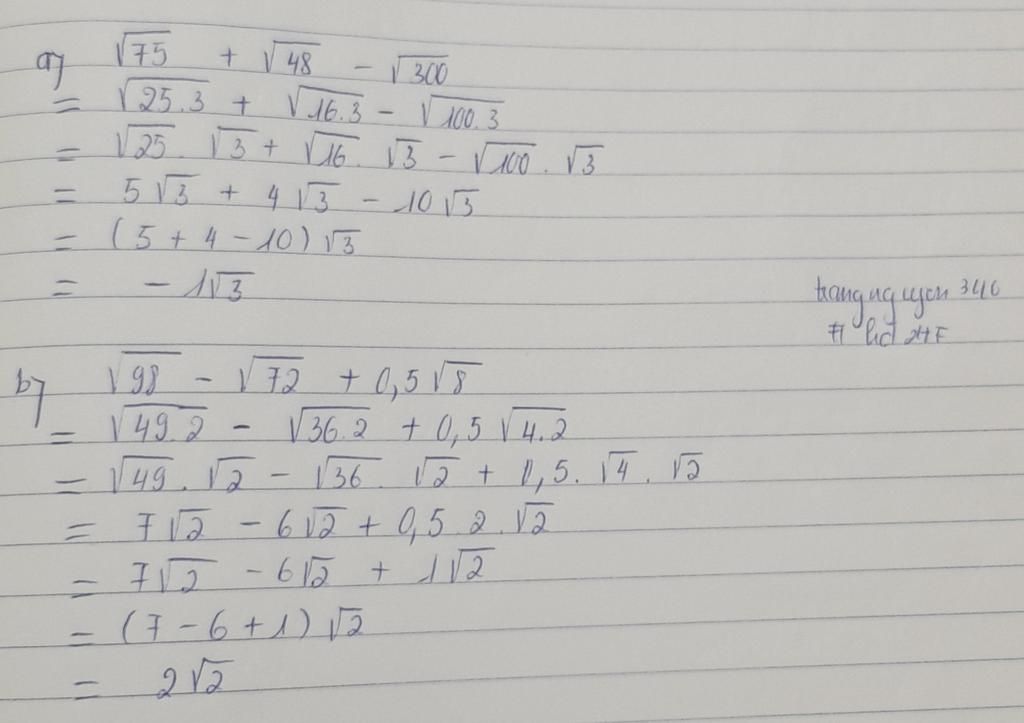 a) √75 + √48 - √300
= √25.3 + √16.3 - √100.3
= √25 . √3 + √16 . √3 - √100 . √3
= 5√3 + 4√3 - 10√3
= (5 + 4 - 10)√3
= - 1√3
b) √98 - √72 + 0,5√8
= √49.2 - √36.2 + 0,5√4.2
= √49 . √2 - √36 . √2 + 0,5 . √4 . √2
= 7√2 - 6√2 + 0,5 2 . √2
= 7√2 - 6√2 + 1√2
= (7 - 6 + 1)√2
= 2√2